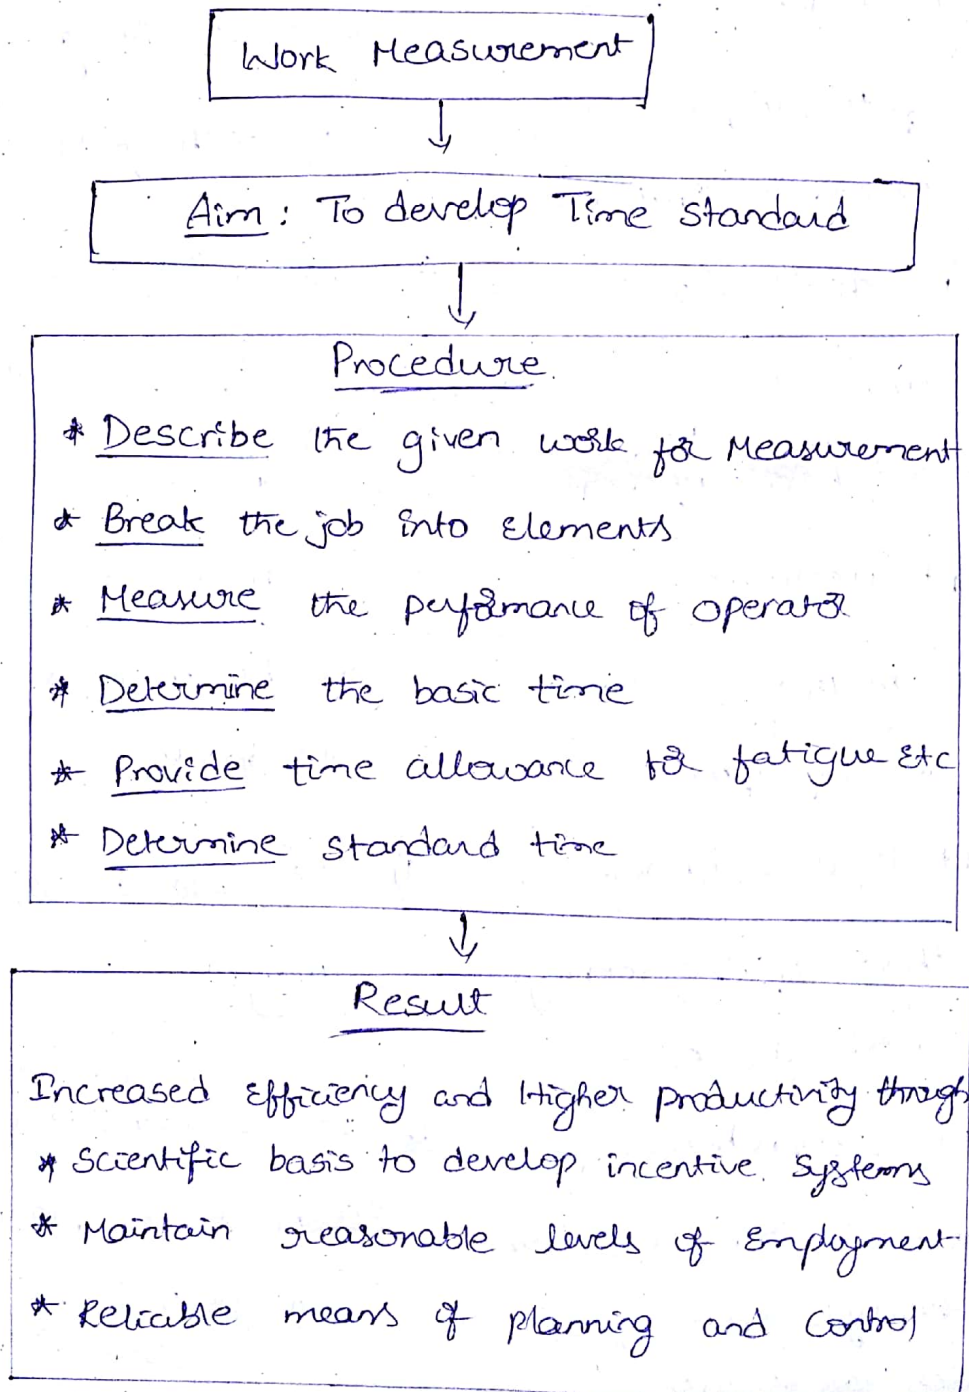 Work Measurement
Aim: To develop Time standard
Procedure.
* Describe the given work for Measurement
* Break the job into Elements
* Measure the performance of operator
* Determine the basic time
* Provide time allowance for fatigue Etc
* Determine standard time
Result
Increased Efficiency and Higher productivity through
* Scientific basis to develop incentive Systems
* Maintain reasonable levels of Employment
* Reliable means of planning and Control